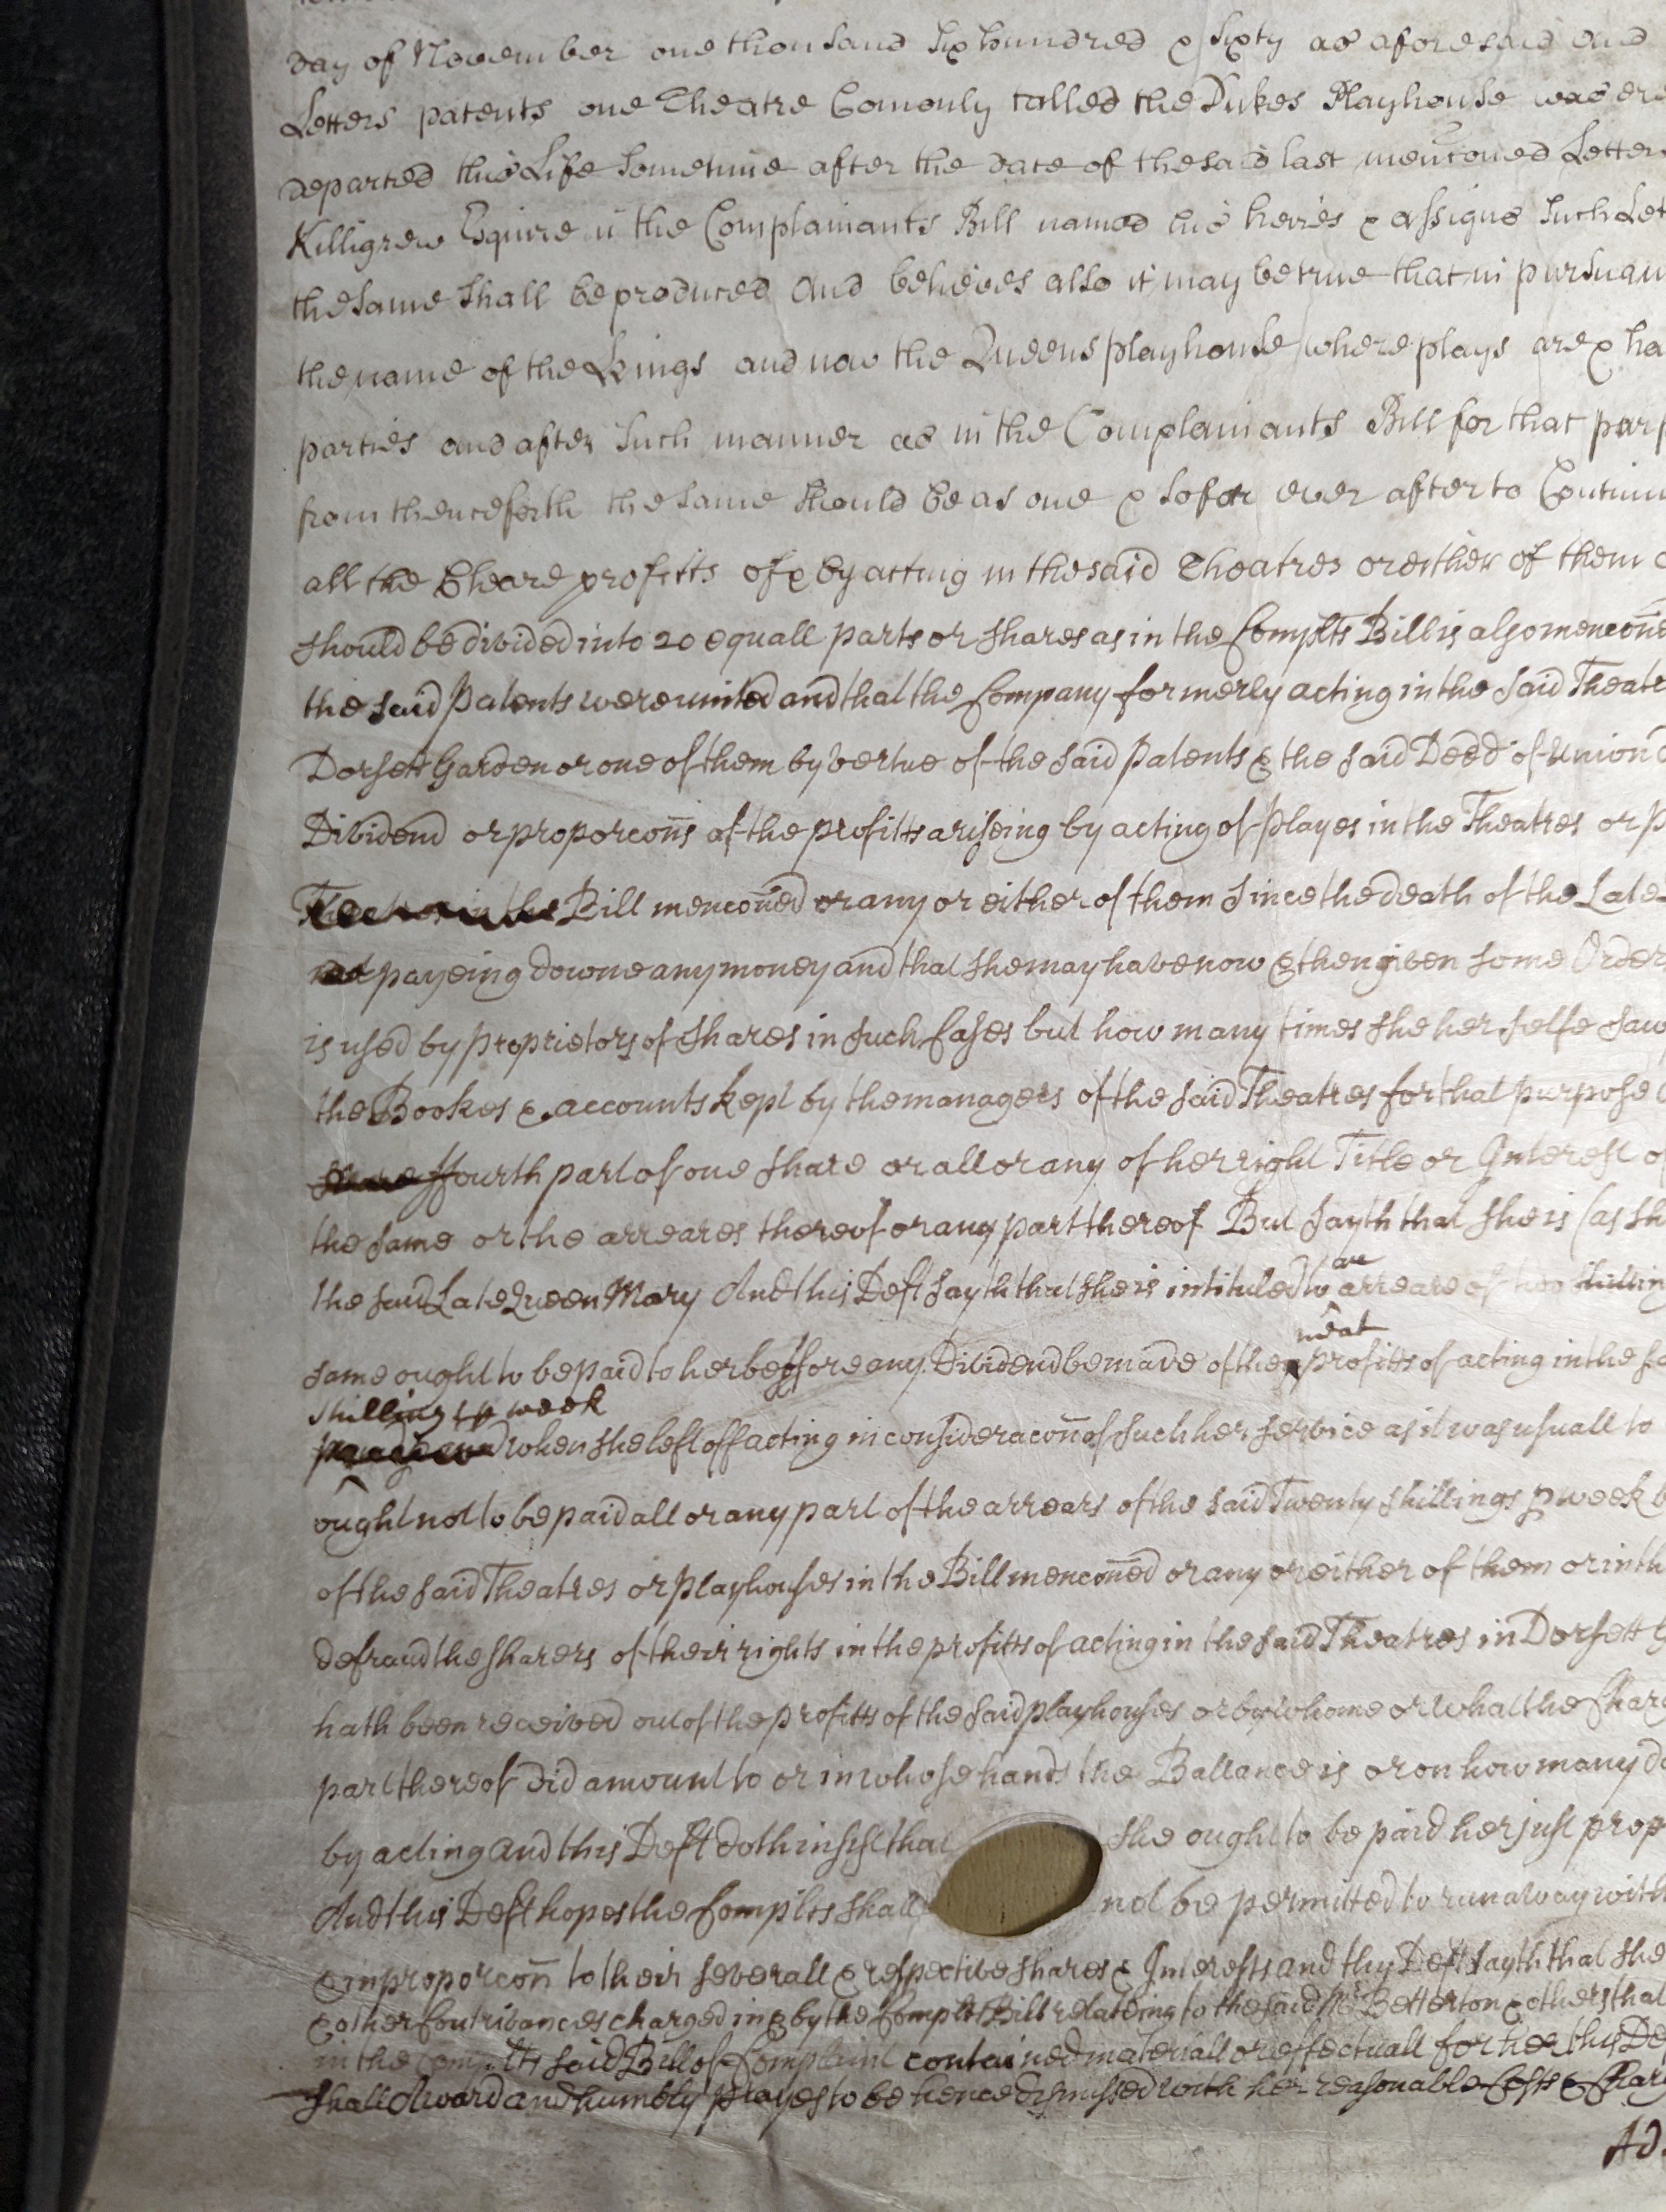 day of November one thousand six hundred & sixty as aforesaid and
Letters patents one Theatre Comonly called the Dukes Playhouse was ere
departed this Life sometime after the date of the said last menconed Letters
Killigrew Esquire in the Complainants Bill named his heires & assignes such Let
the same shall be produced And beleives also it may be true that in pursuan
the name of the Kings and now the Queens playhouse where plays are & ha
parties and after such manner as in the Complainants Bill for that purp
from thenceforth the same should be as one & so for ever after to Continu
all the Cleare profitts of & by acting in the said Theatres or either of them
should be divided into 20 equall parts or shares as in the Complts Bill is also mencone
the said Patents were united and that the Company formerly acting in the said Theatr
Dorsett Garden or one of them by vertue of the said Patents & the said Deed of Union
Dividend or proporcons of the profitts ariseing by acting of Playes in the Theatres or p
Bill menconed or any or either of them since the death of the Late
payeing downe any money and that she may have now & then given some Order
is used by proprietors of shares in such Cases but how many times she her selfe saw
the Bookes & accounts kept by the managers of the said Theatres for that purpose
ffourth part of one share or all or any of her right Title or Interest of
the same or the arreares thereof or any part thereof But sayth that she is (as sh
the said Late Queen Mary And this Deft sayth that she is intituled to an arreare of shilling
neat
same ought to be paid to her beffore any Dividend be made of the profitts of acting in the sa
shillings p week
when she left off acting in consideracon of such her service as it was usuall to
ought not to be paid all or any part of the arrears of the said Twenty shillings p week
of the said Theatres or Playhouses in the Bill menconed or any or either of them or in th
defraud the sharers of their rights in the profitts of acting in the said Theatres in Dorsett G
hath been received out of the profitts of the said playhouses or by whome or what the Charg
part thereof did amount to or in whose hands the Ballance is or on how many da
by acting and this Deft doth insist that she ought to be paid her just prop
And this Deft hopes the Complts shall not be permitted to run away with
& in proporcon to their severall & respective shares & Interests and this Deft sayth that she
& other Contrivances charged in & by the Complts Bill relateing to the said Mr Betterton & others that
in the Complts said Bill of Complaint contained materiall or effectuall for her this De
shall Award and humbly prayes to be hence dismissed with her reasonable Costs & Char
Ad.